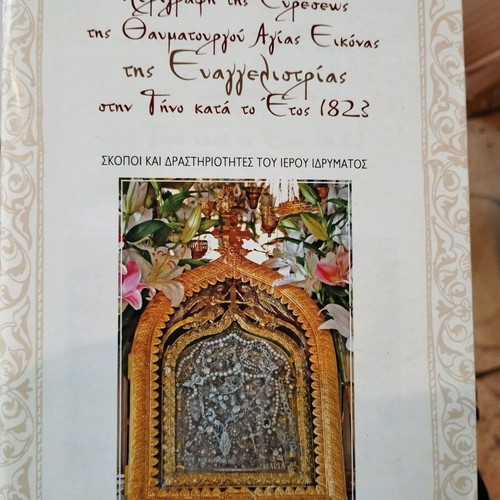 Περιγραφή της Ευρέσεως
της Θαυματουργού Αγίας Εικόνας
της Ευαγγελιστρίας
στην Τήνο κατά το Έτος 1823
ΣΚΟΠΟΙ ΚΑΙ ΔΡΑΣΤΗΡΙΟΤΗΤΕΣ ΤΟΥ ΙΕΡΟΥ ΙΔΡΥΜΑΤΟΣ